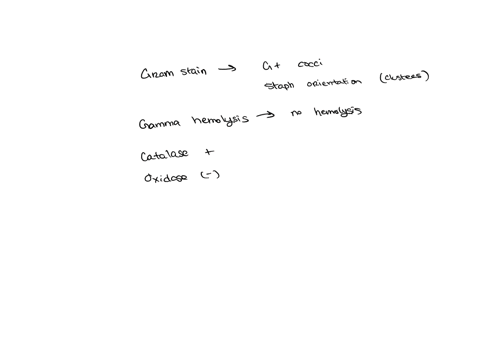 Gram stain → G+ cocci
staph orientation (clusters)
Gamma hemolysis → no hemolysis
Catalase +
Oxidase (-)